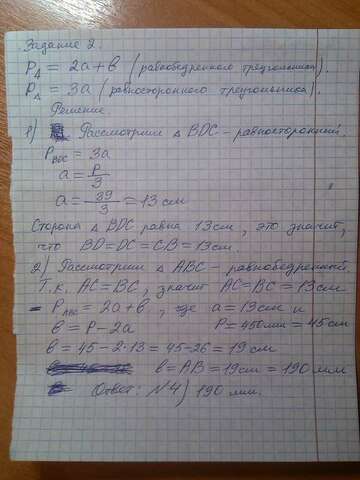 Задание 2.
P△ = 2a + в (равнобедренного треугольника).
P△ = 3a (равностороннего треугольника).
Решение.
1) Рассмотрим △ BDC – равносторонний.
P BDC = 3a
a = P/3
a = 39/3 = 13 см
Сторона △ BDC равна 13 см, это значит,
что BD = DC = CB = 13 см.
2) Рассмотрим △ ABC – равнобедренный
Т.к. AC = BC, значит AC = BC = 13 см
P ABC = 2a + в, где a = 13 см и
в = P - 2a P = 450 мм = 45 см
в = 45 - 2·13 = 45 - 26 = 19 см
в = AB = 19 см = 190 мм
Ответ: №4) 190 мм.